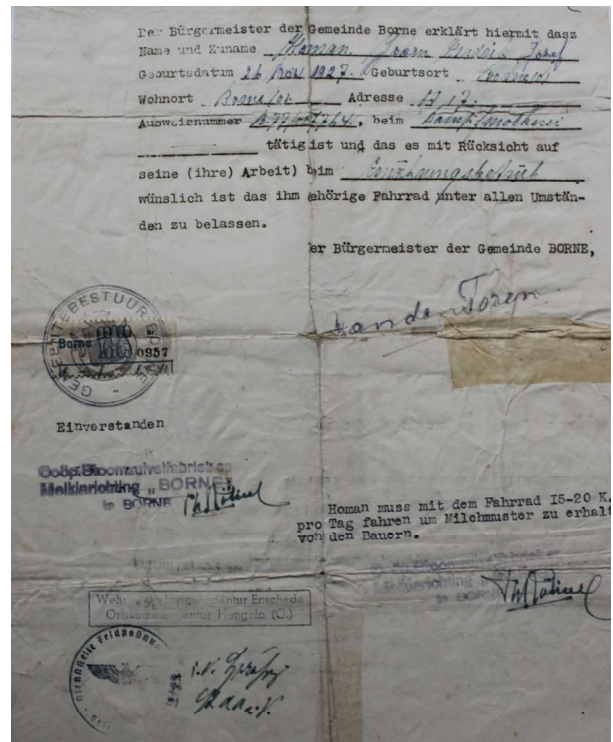 Der Bürgermeister der Gemeinde Borne erklärt hiermit dasz
Name und Zuname Homan Hendrik Josef
Geburtsdatum 26 Nov 1927. Geburtsort
Wohnort Borne/ov. Adresse 17.
Ausweisnummer beim Dampfmolkerei
tätig ist und das es mit Rücksicht auf
seine (ihre) Arbeit) beim Ernährungsbetrieb
wünslich ist das ihm ehörige Fahrrad unter allen Umstän-
den zu belassen.
er Bürgermeister der Gemeinde BORNE,
van den Toren
GEMEENTEBESTUUR BORNE
Borne 0957
Einverstanden
Coöp. Stoomzuivelfabriek en
Melkinrichting „BORNE"
te BORNE
Homan muss mit dem Fahrrad I5-20 K.
pro Tag fahren um Milchmuster zu erhalt
von den Bauern.
Coöp. Stoomzuivelfabriek en
Melkinrichting
te BORNE
Enschede
Ortskommandantur Hengelo (O.)
Dienststelle Feldpostnr